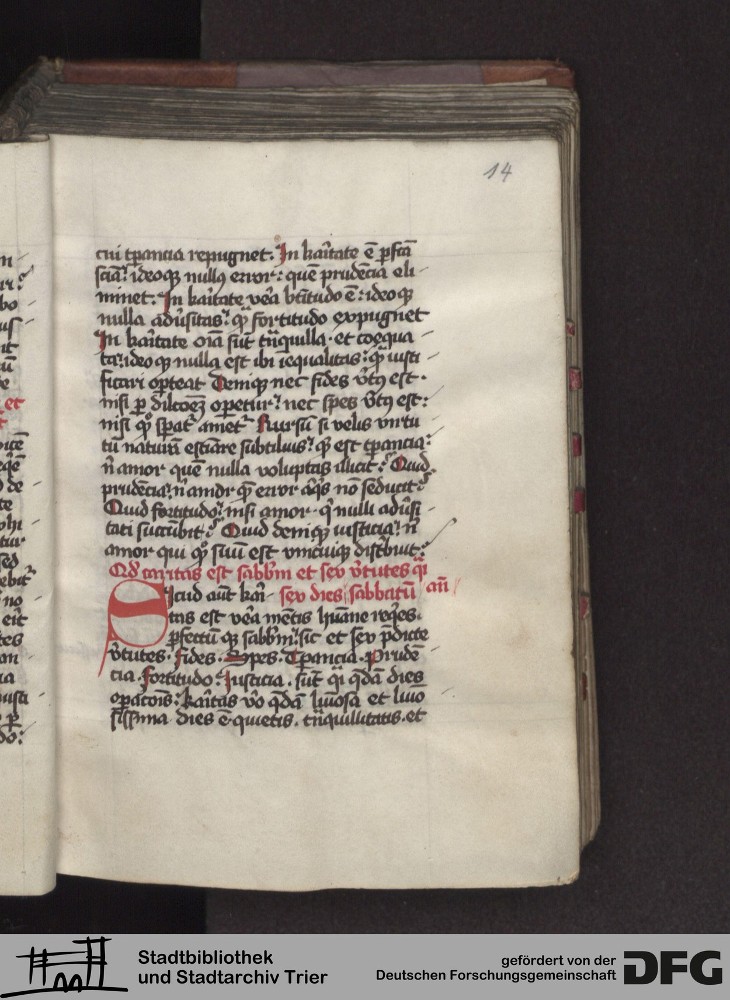 14
cui tpancia repugnet. In kaitate ē pfcā
sciā: ideoqȝ nullꝰ error: quē prudēcia eli
minet. In kaitate vēa btitudo ē: ideoqȝ
nulla adūsitas: qȝ fortitudo expugnet
In kaitate oīa sūt tnquilla. et coequa
ta: ideo qȝ nulla est ibi īequalitas: qȝ iusti
ficari opteat Deniqȝ nec fides vtꝰ est.
nisi p dilcōeȝ opetur: nec spes vtꝰ est:
nisi qȝ spat amet Rursū si velis virtu
tū natura subtiliꝰ: qȝ est tpancia:
n amor quē nulla voluptas illicit: Quid
prudēcia: n amor qȝ error nō seducit:
Quid fortitudo: nisi amor. q nulli adūsi
tati succūbit: Quid deniqȝ iusticia: n
amor qui qȝ suū est vnicuiqȝ distbuit:
Qd caritas est sabbm et sex vtutes qi
Sicud aūt kai sex dies sabbatū an
tas est vēa mētis hūane reqes.
pfectū qȝ sabbm: sic et sex pdicte
vtutes. fides. Spes. Tpancia. Prudē
cia. fortitudo. Iusticia. sūt qi qdā dies
opacōis: kaitas vō qdā lūosa et lūio
sissima dies ē quietis. tnquillitatis. et
n
bo
it
te
et
de
te
sed
no
tes
ia
p
Stadtbibliothek
und Stadtarchiv Trier
gefördert von der
Deutschen Forschungsgemeinschaft
DFG